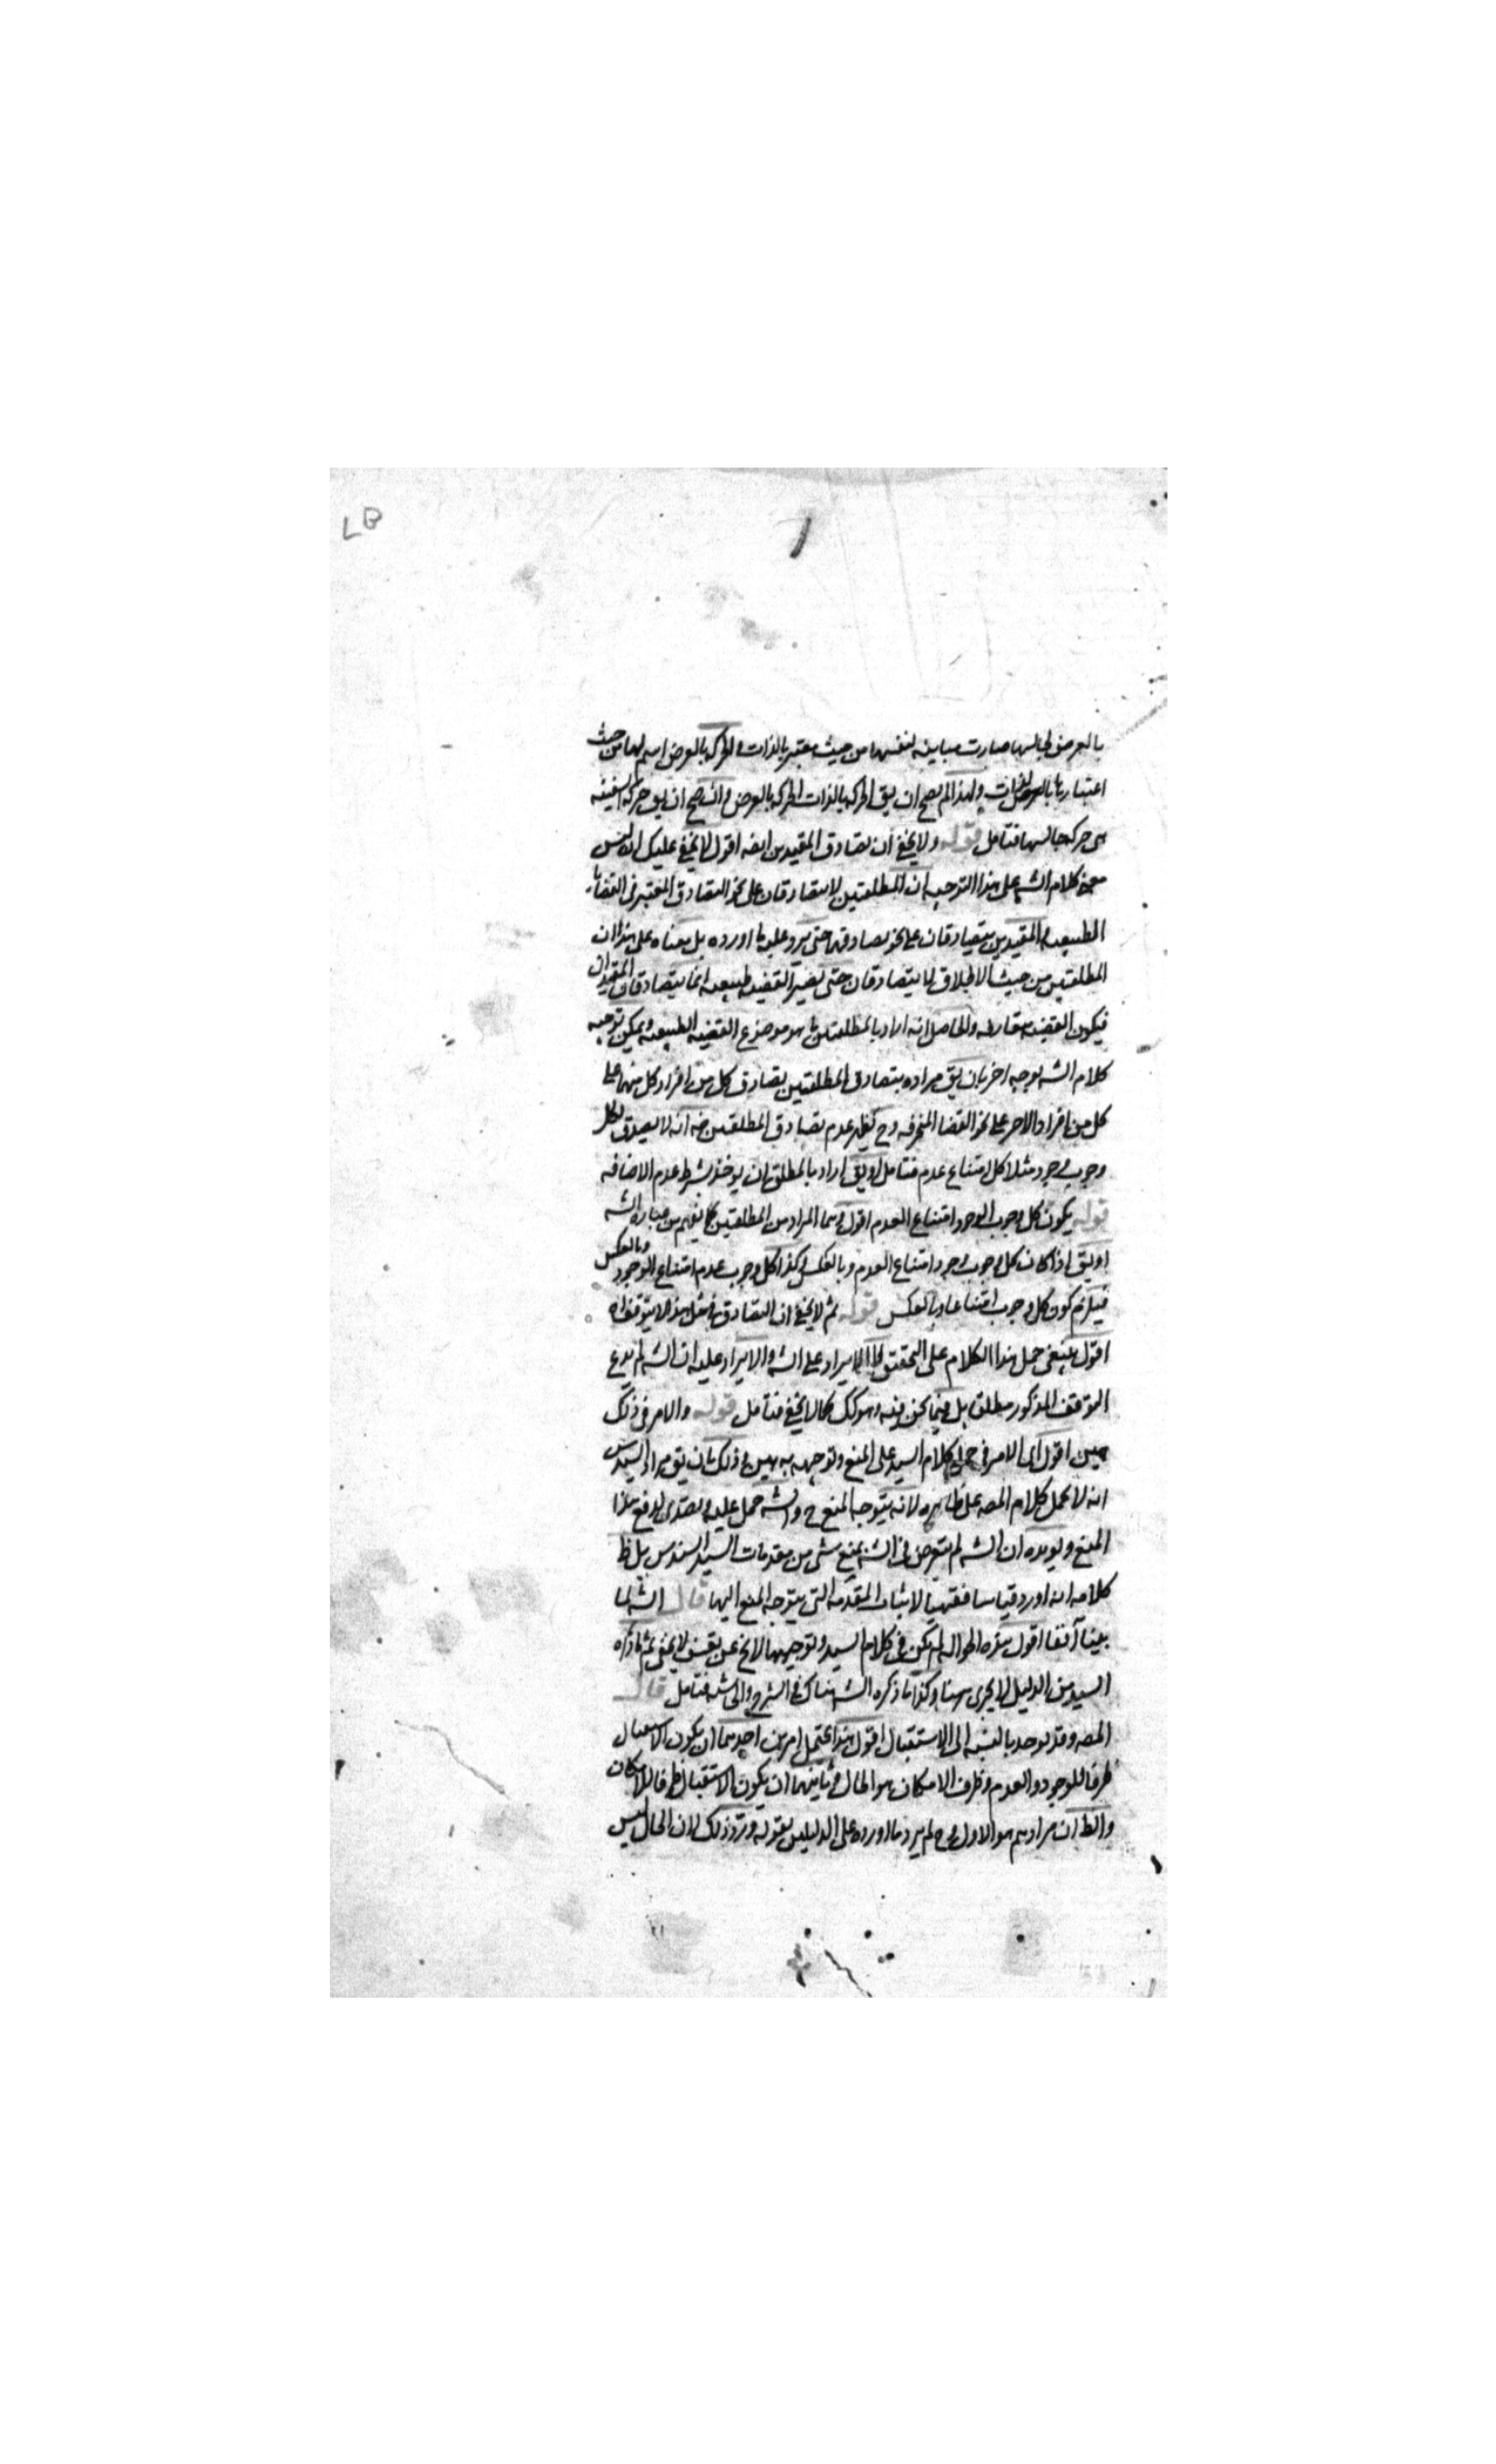 LB
بالعرض لجالسها صارت مباينه لنفسها من حيث معتبر بالذات والحركه بالعرض اسم لها من حيث
اعتبارها بالعرض ولهذا لم يصح ان يق الحركه بالذات الحركه بالعرض وان صح ان يق حركه السفينه
هى حركه جالسها فتامل قوله ولا يخفى ان تصادق المقيدين الخ اقول لا يخفى عليك انه ليس
معنى كلام الشه على هذا التوجيه ان المطلقتين لا يتصادقان على نحو التصادق المعتبر فى القضايا
الطبيعيه والمقيدين يتصادقان على نحو تصادقها حتى يرد عليه ما اورده بل معناه على هذا ان
المطلقتين من حيث الاطلاق لا يتصادقان حتى يصير القضيه طبيعيه انما يتصادقان المقيدان
فيكون القضيه متعارفه والحاصل انه اراد بالمطلقتين ما هو موضوع القضيه الطبيعيه ويمكن توجيه
كلام الشه بوجه اخر بان يق مراده بتصادق المطلقتين تصادق كل من افراد كل منهما على
كل من افراد الاخر على نحو القضايا المنحرفه وح يظهر عدم تصادق المطلقتين فيه انه لا يصدق لكل
وجوب وجود مثلا كل امتناع عدم فتامل او يق اراد بالمطلق ان يوخذ بشرط عدم الاضافه
قوله يكون كل وجوب الوجود امتناع العدم اقول وهما المراد من المطلقتين كما يفهم من عباره الشه
او يق اذا كان كل وجوب وجود امتناع العدم وبالعكس وكذا كل وجوب عدم امتناع الوجود وبالعكس
فيلزم كون كل وجوب امتناعا وبالعكس قوله ثم لا يخفى ان التصادق فى مثل هذا لا يتوقف اه
اقول ينبغى حمل هذا الكلام على التحقيق لا الايراد على الشه والا يراد عليه ان الشه لم يدع
التوقف المذكور مطلقا بل فيما نحن فيه وهو كك كما لا يخفى فتامل قوله والامر فى ذلك
هين اقول اى الامر فى حمل كلام السيد على المنع وتوجيهه به هين وذلك بان يق مراد السيد س
انه لا يحمل كلام المصه على ظاهره لانه يتوجه المنع ح والشه حمل عليه وتصدى لدفع هذا
المنع ويويده ان الشه لم يتعرض فى الشه بمنع شى من مقدمات السيد السند س بل ظ
كلامه انه اورد قياسا فقهيا لاثبات المقدمه التى يتوجه المنع اليها قال الشه لما
بينا آنفا اقول هذه الحواله لم يكن فى كلام السيد وتوجيهها لا يخ عن تعسف لا يخفى ثم ما ذكره
السيد من الدليل لا يجرى هنا وكذا ما ذكره الشه هناك فى الشرح والحاشيه فتامل قال
المصه وقد يوخذ بالنسبه الى الاستقبال اقول هذا يحتمل امرين احدهما ان يكون الاستقبال
ظرفا للوجود والعدم وظرف الامكان هو الحال وثانيهما ان يكون الاستقبال ظرفا للامكان
والظ ان مرادهم هو الاول وح لم يرد ما اورده على الدليلين بقوله ورد ذلك لان الحال ليس